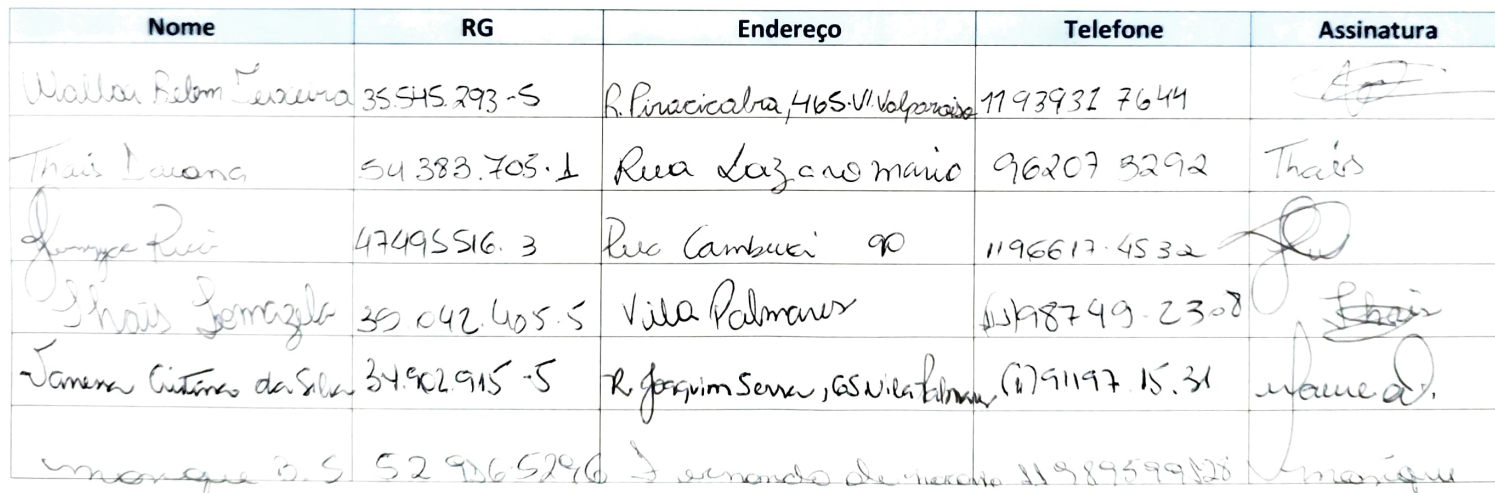 Nome RG Endereço Telefone Assinatura
Belem Teixeira 35.545.293-5 R. Piracicaba, 465. Vl. Valparaiso 11 93931 7644
Thais 54 383.705.1 Rua Lazaro mario 96207 3292 Thais
47495516.3 Rua Cambuci 90 1196617.4532
Thais 042.405.5 Vila Palmares (11)98749-2308 Thais
Vanessa da Silva 34.902.915-5 R. Joaquim Serra, 65 Vila Palmares (11)91197.15.31
monique B.S 52 936.5296 Fernando de 11 989599828 monique